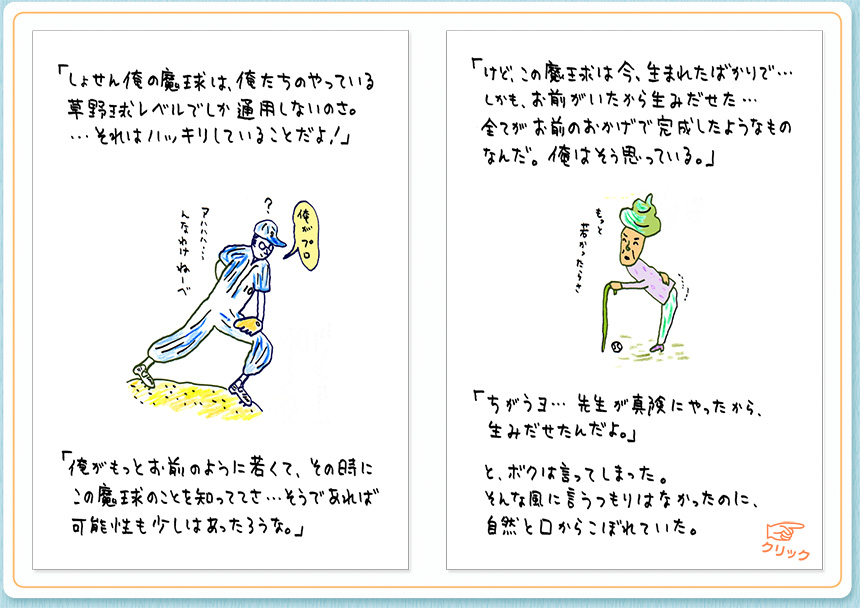 「しょせん俺の魔球は、俺たちのやっている
草野球レベルでしか通用しないのさ。
…それはハッキリしていることだよ!」
?
俺がプロ
アハハハ…
んなわけねーべ
「俺がもっとお前のように若くて、その時に
この魔球のことを知っててさ…そうであれば
可能性も少しはあったろうな。」
「けど、この魔球は今、生まれたばかりで…
しかも、お前がいたから生みだせた…
全てがお前のおかげで完成したようなもの
なんだ。俺はそう思っている。」
もっと
若かったらさ
「ちがうヨ…先生が真険にやったから、
生みだせたんだよ。」
と、ボクは言ってしまった。
そんな風に言うつもりはなかったのに、
自然と口からこぼれていた。
クリック